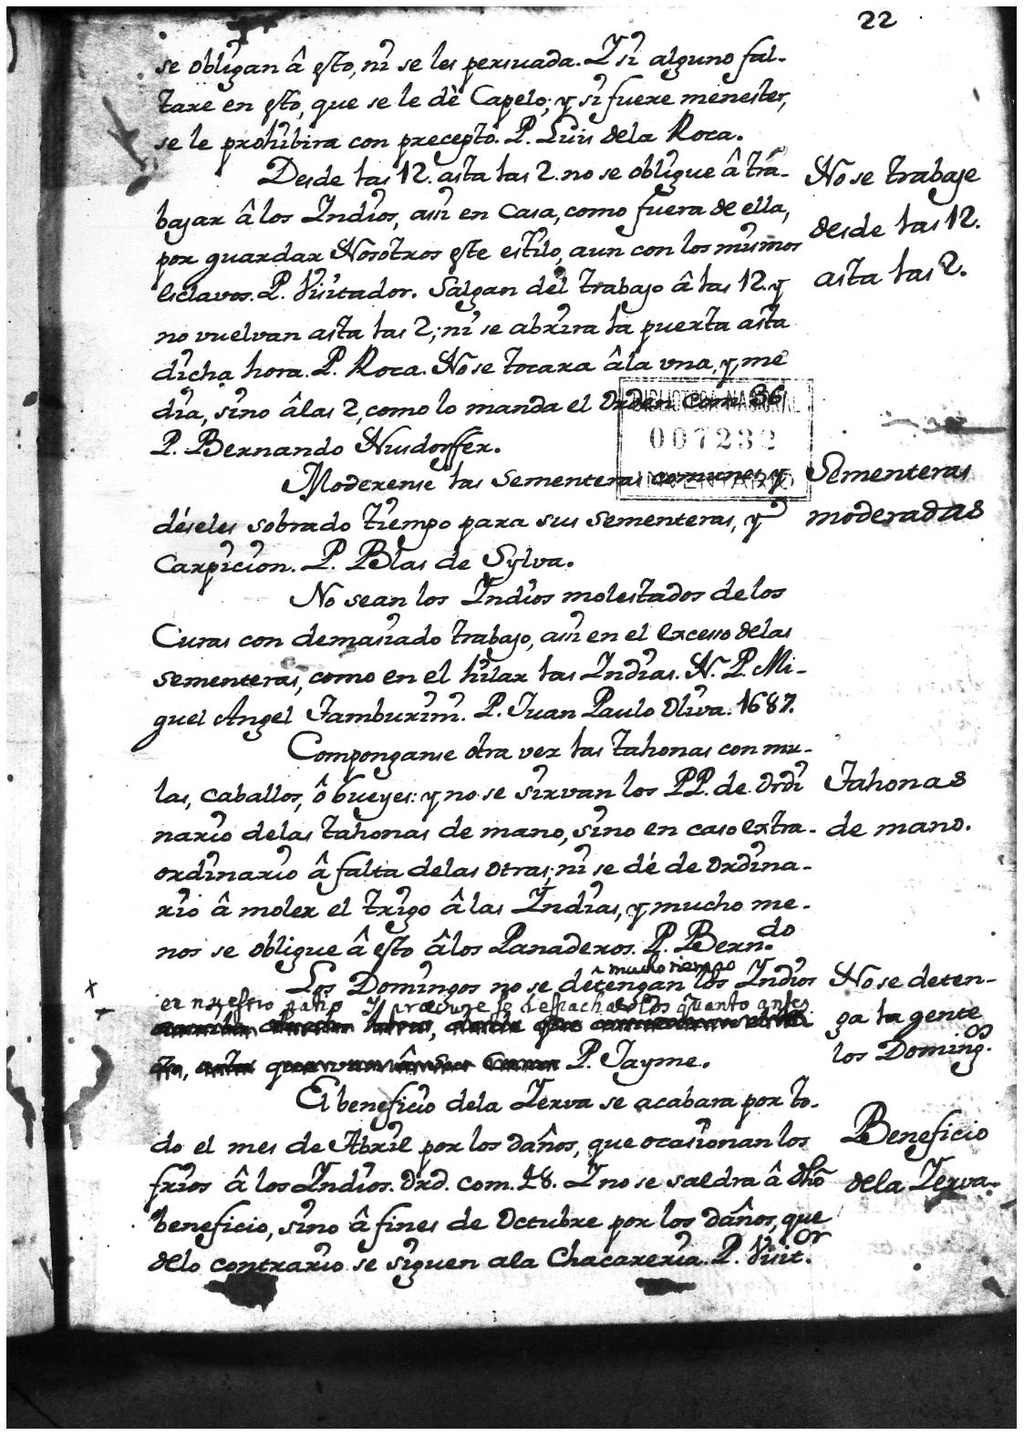 22
se obligan â esto, ni se les persuada. Y si alguno fal-
tare en esto, que se le dê Capelo; y si fuere menester,
se le prohibira con precepto. P. Luis dela Roca.
Desde las 12. asta las 2. no se obligue â tra-
bajar â los Indios, assi en Casa, como fuera de ella,
por guardar Nosotros este estilo, aun con los mismos
esclavos. P. Visitador. Salgan del trabajo â las 12. y
no vuelvan asta las 2; ni se abrira la puerta asta
dicha hora. P. Roca. No se tocara â la una, y me
dia, sino â las 2, como lo manda el Orden com. 36
P. Bernardo Nusdorffer.
No se trabaje
desde las 12.
asta las 2.
BIBLIOTECA NACIONAL
007232
INVENTARIO
Moderense las Sementeras comunes, y
déseles sobrado tiempo para sus sementeras, y
Carpicion. P. Blas de Sylva.
Sementeras
moderadas
No sean los Indios molestados de los
Curas con demasiado trabajo, assi en el excesso delas
sementeras, como en el hilar las Indias. N. P. Mi-
guel Angel Tamburini. P. Juan Paulo Oliva. 1687.
Componganse otra vez las tahonas con mu-
las, caballos, ô bueyes: y no se sirvan los PP. de Ordi
nario delas tahonas de mano, sino en caso extra-
ordinario â falta delas otras; ni se dé de Ordina-
rio â moler el trigo â las Indias, y mucho me-
nos se obligue â esto âlos Panaderos. P. Bern.do
Tahonas
de mano.
Los Domingos no se detengan mucho tiempo los Indios
en nuestro patio y procurese despacharlos quanto antes
P. Jayme.
No se deten-
ga la gente
los Doming.os
El beneficio dela Yerva se acabara por to-
do el mes de Abril por los daños, que ocasionan los
frios â los Indios. Ord. com. 18. Y no se saldra â dho
beneficio, sino â fines de Octubre por los daños, que
delo contrario se siguen ala Chacareria. P. Visit.or
Beneficio
dela Yerva.